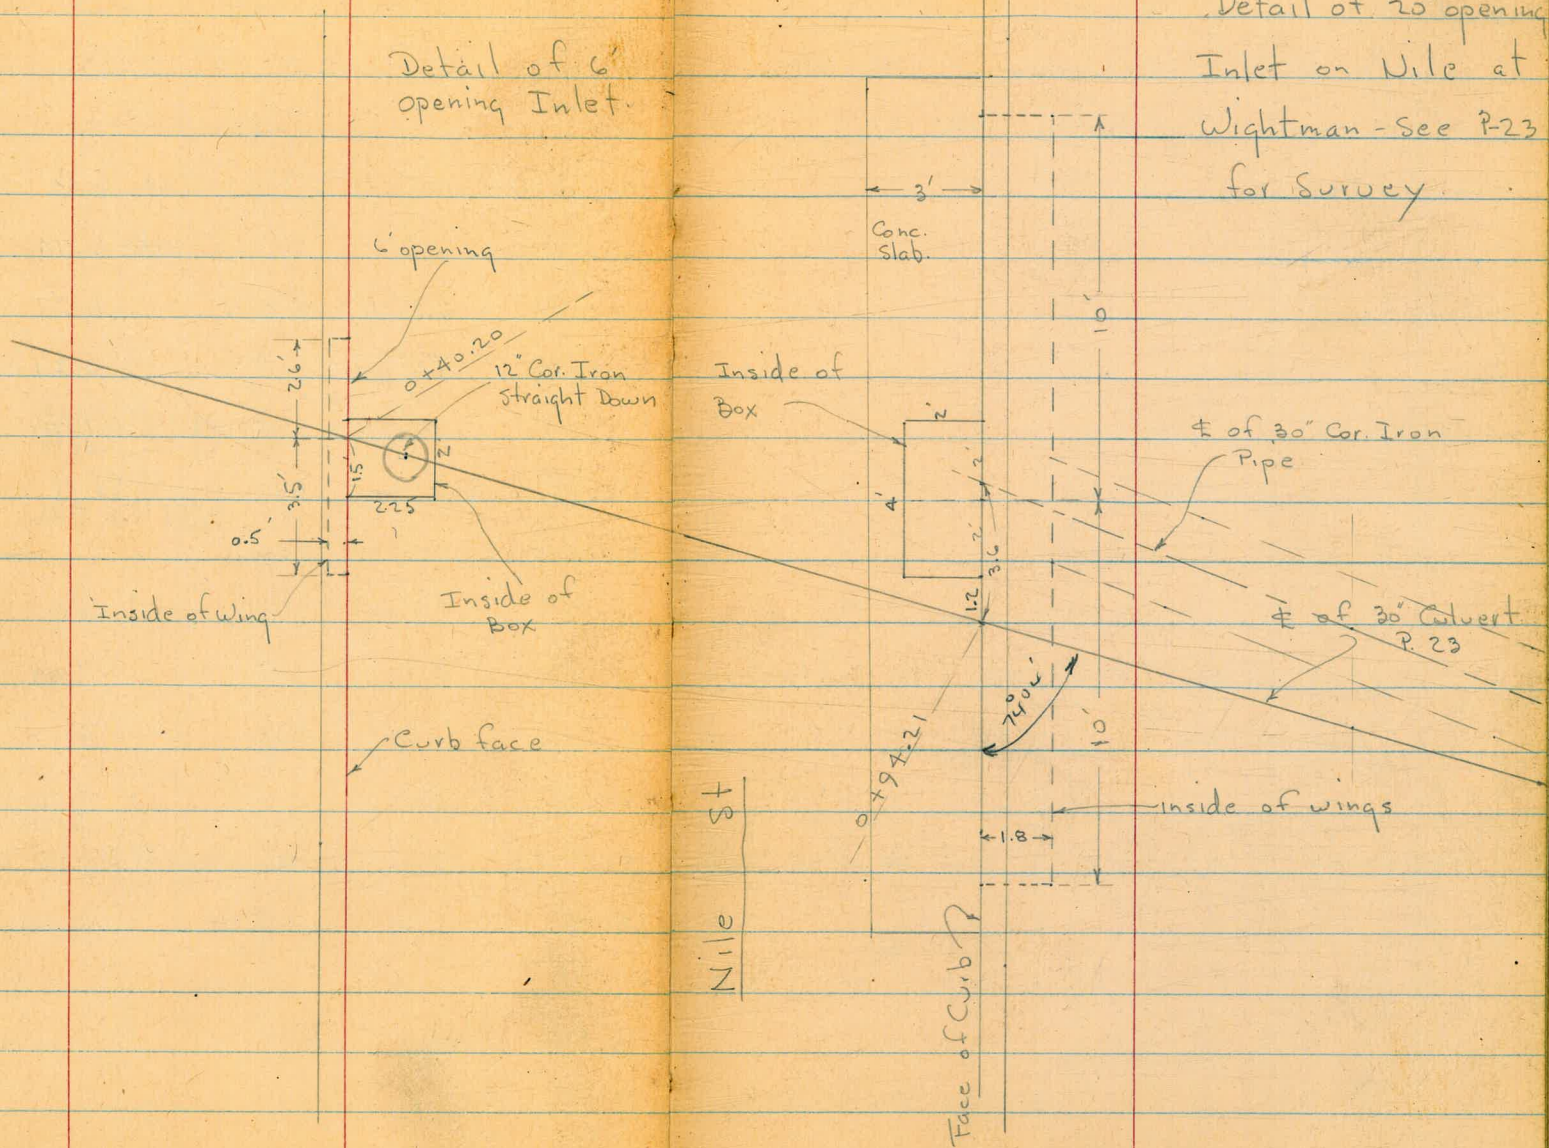 Detail of 6'
opening Inlet.
6' opening
0+40.20
12" Cor. Iron
Straight Down
2.6'
3.5'
1.5
2'
2.25
0.5'
Inside of wing
Inside of
Box
Curb face
Detail of 20' opening
Inlet on Nile at
Wightman - See P-23
for Survey
3'
Conc.
Slab.
10'
Inside of
Box
2'
4'
2'
2'
3.6
1.2
℄ of 30" Cor. Iron
Pipe
℄ of 30" Culvert
P. 23
0+94.21
10'
inside of wings
1.8
Nile St
Face of Curb